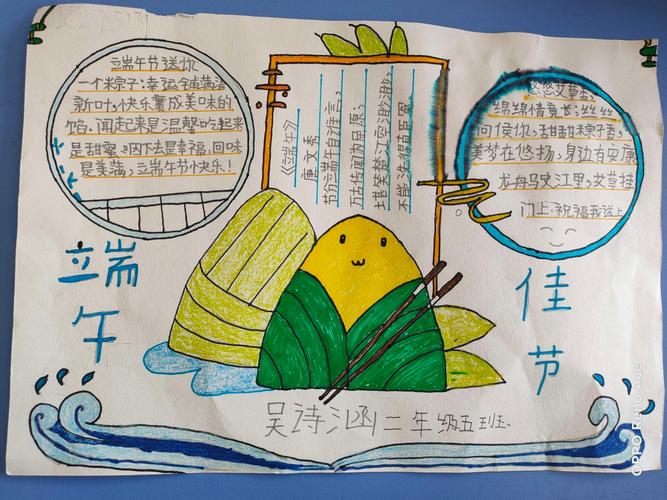 端午节送你
一个粽子:幸运铺满着
新叶,快乐裹成美味的
馅.闻起来是温馨,吃起来
是甜蜜.咽下去是幸福,回味
是美满,端午节快乐!
《端午》
唐文秀
节分端午自谁言,
万古传闻为屈原;
堪笑楚江空渺渺,
不能洗得直臣冤。
悠悠艾草香;
绵绵情意长;丝丝
问候你,甜甜粽子香,
美梦在悠扬,身边有安康
龙舟驶江里,艾草挂
门上.祝福我送上
端
午
佳
节
吴诗涵二年级五班.
OPPO Reno Ace